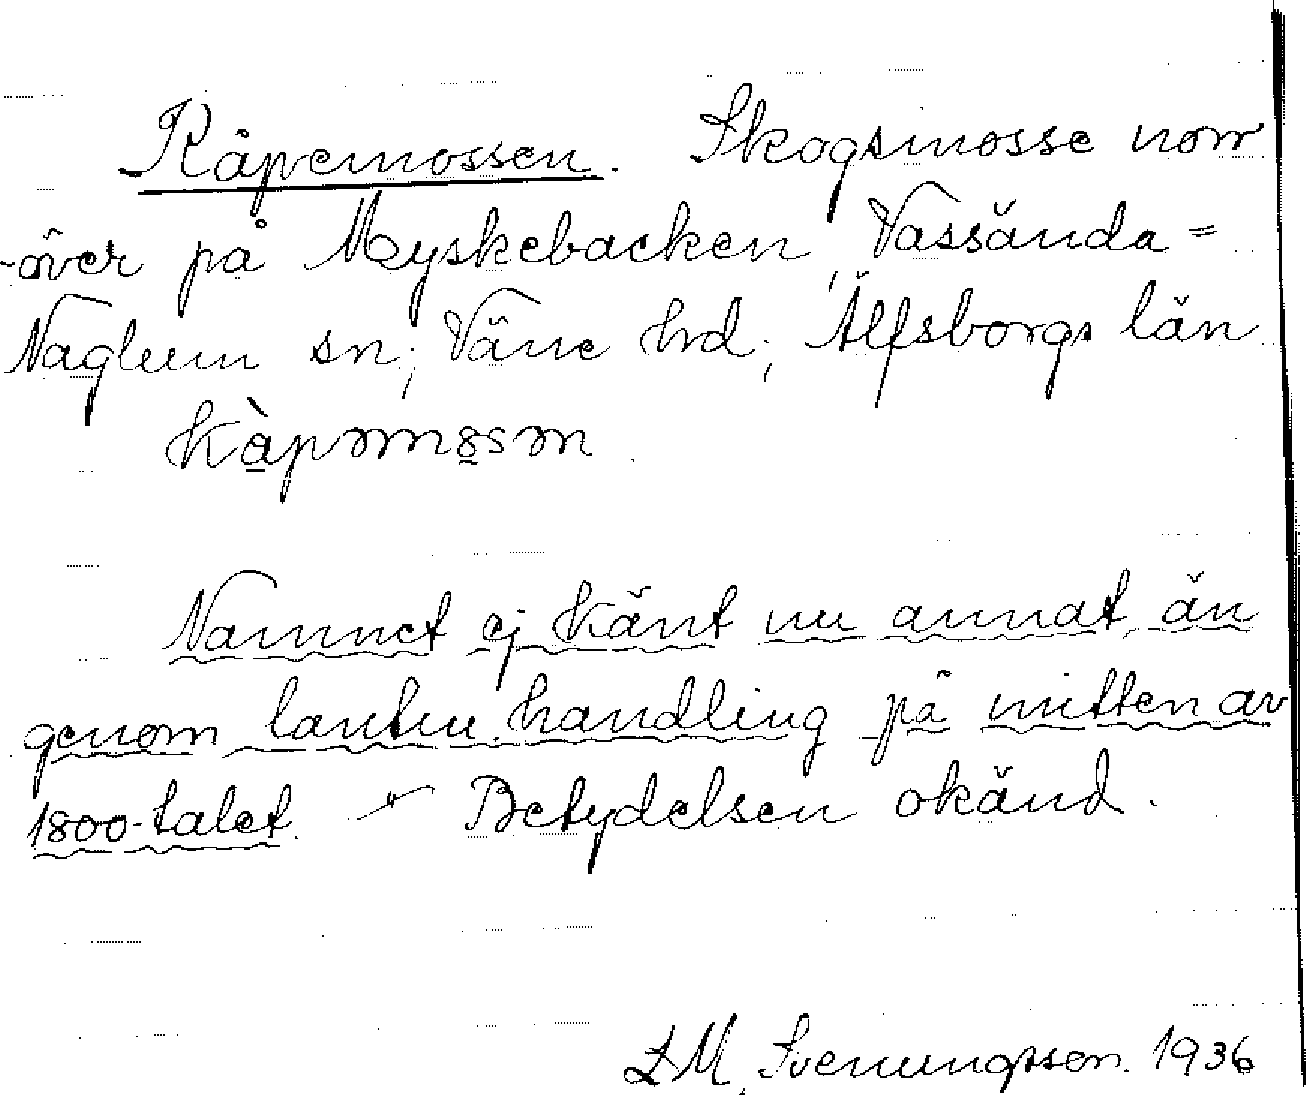 Råpemossen. Skogsmosse norr
-över på Myskebacken, Vassända=
Naglum sn; Väne hd; Älfsborgs län
kàpmmosm
Namnet ej känt nu annat än
genom lantm. handling på mitten av
1800-talet. Betydelsen okänd.
LM. Svenungsson. 1936